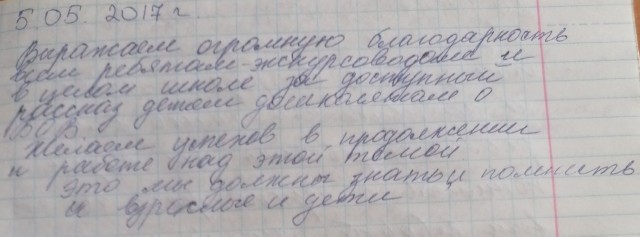 5.05.2017 г.
Выражаем огромную благодарность
всем ребятам-экскурсоводам и
в целом школе за доступный
рассказ детям дошколятам о
ВОВ.
Желаем успехов в продолжении
и работе над этой темой
это мы должны знать и помнить
и взрослые и дети